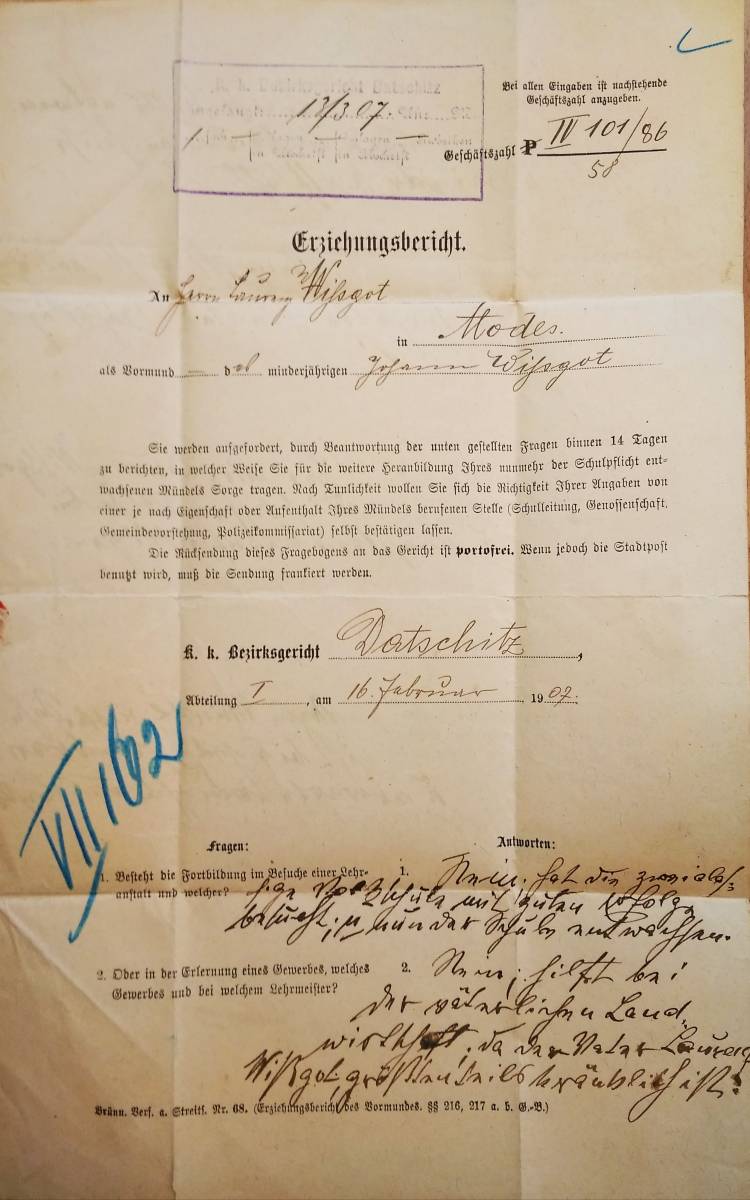 Bei allen Eingaben ist nachstehende
Geschäftszahl anzugeben.
K. k. Bezirksgericht Datschitz
13/3 07.
Geschäftszahl P IV 101/86
58
Erziehungsbericht.
An Herrn Laurenz Wißgot
in Modes.
als Vormund — des minderjährigen Johann Wißgot
Sie werden aufgefordert, durch Beantwortung der unten gestellten Fragen binnen 14 Tagen
zu berichten, in welcher Weise Sie für die weitere Heranbildung Ihres nunmehr der Schulpflicht ent-
wachsenen Mündels Sorge tragen. Nach Tunlichkeit wollen Sie sich die Richtigkeit Ihrer Angaben von
einer je nach Eigenschaft oder Aufenthalt Ihres Mündels berufenen Stelle (Schulleitung, Genossenschaft,
Gemeindevorstehung, Polizeikommissariat) selbst bestätigen lassen.
Die Rücksendung dieses Fragebogens an das Gericht ist portofrei. Wenn jedoch die Stadtpost
benutzt wird, muß die Sendung frankiert werden.
K. k. Bezirksgericht Datschitz,
Abteilung I, am 16. Februar 1907.
VII 162
Fragen:
Antworten:
1. Besteht die Fortbildung im Besuche einer Lehr-
anstalt und welcher?
1. Nein. hat die zweiklaß-
sige Volksschule mit gutem Erfolge
besucht, u nun der Schule entwachsen.
2. Oder in der Erlernung eines Gewerbes, welches
Gewerbes und bei welchem Lehrmeister?
2. Nein, hilft bei
der väterlichen Land-
wirthschaft, da der Vater Laurenz
Wißgot, größtenteils kränklich ist.
Brünn. Verf. a. Streitf. Nr. 68. (Erziehungsbericht des Vormundes. §§ 216, 217 a. b. G.-B.)